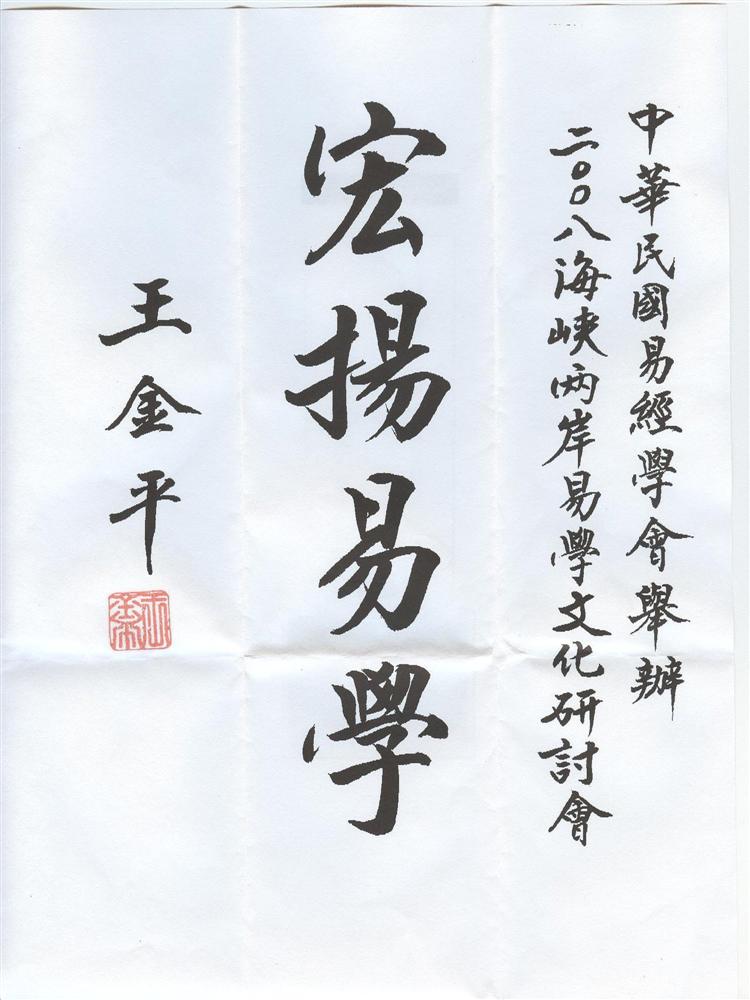 中華民國易經學會舉辦
二〇〇八海峽兩岸易學文化研討會
宏揚易學
王金平